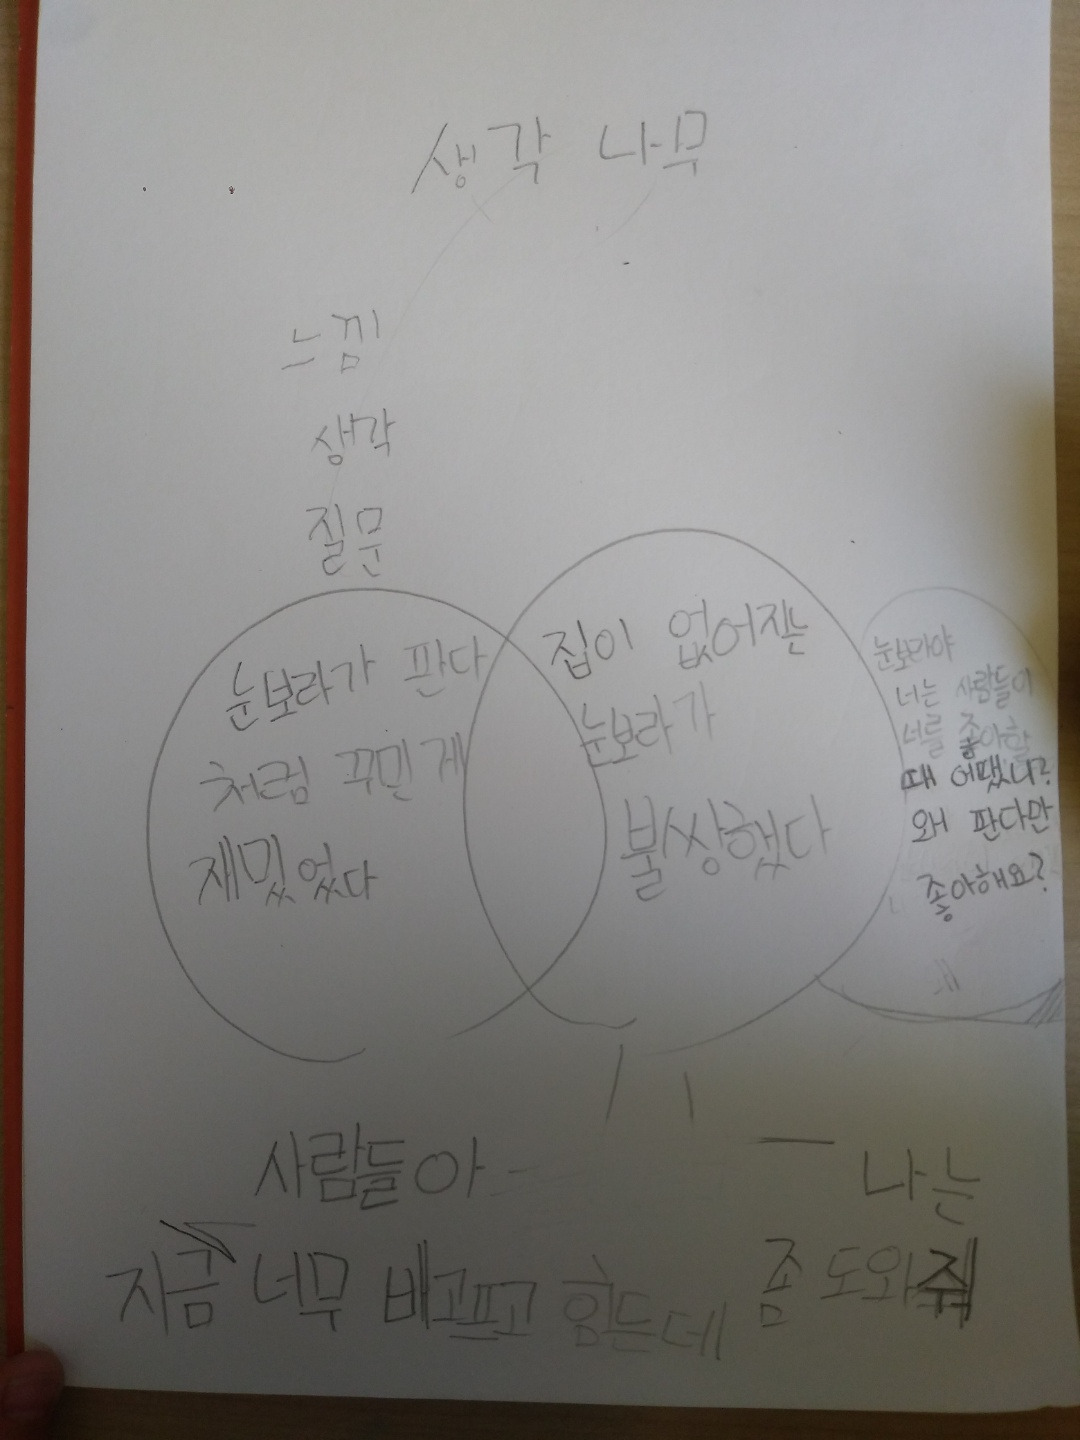 생각 나무
느낌
생각
질문
눈보라가 판다
처럼 꾸민게
재밌었다
집이 없어지는
눈보라가
불쌍했다
눈보라야
너는 사람들이
너를 좋아할
때 어땠니?
왜 판다만
좋아해요?
사람들아 나는
지금 너무 배고프고 힘든데 좀 도와줘